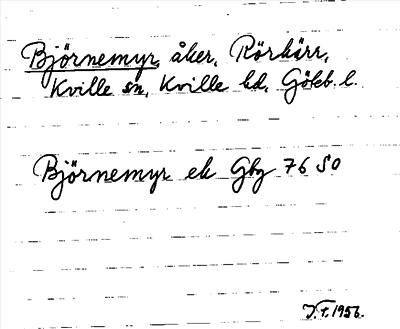 Björnemyr, åker, Rörkärr,
Kville sn, Kville hd, Göteb. l.
Björnemyr ek Gbg 76 SO
J.T. 1956.